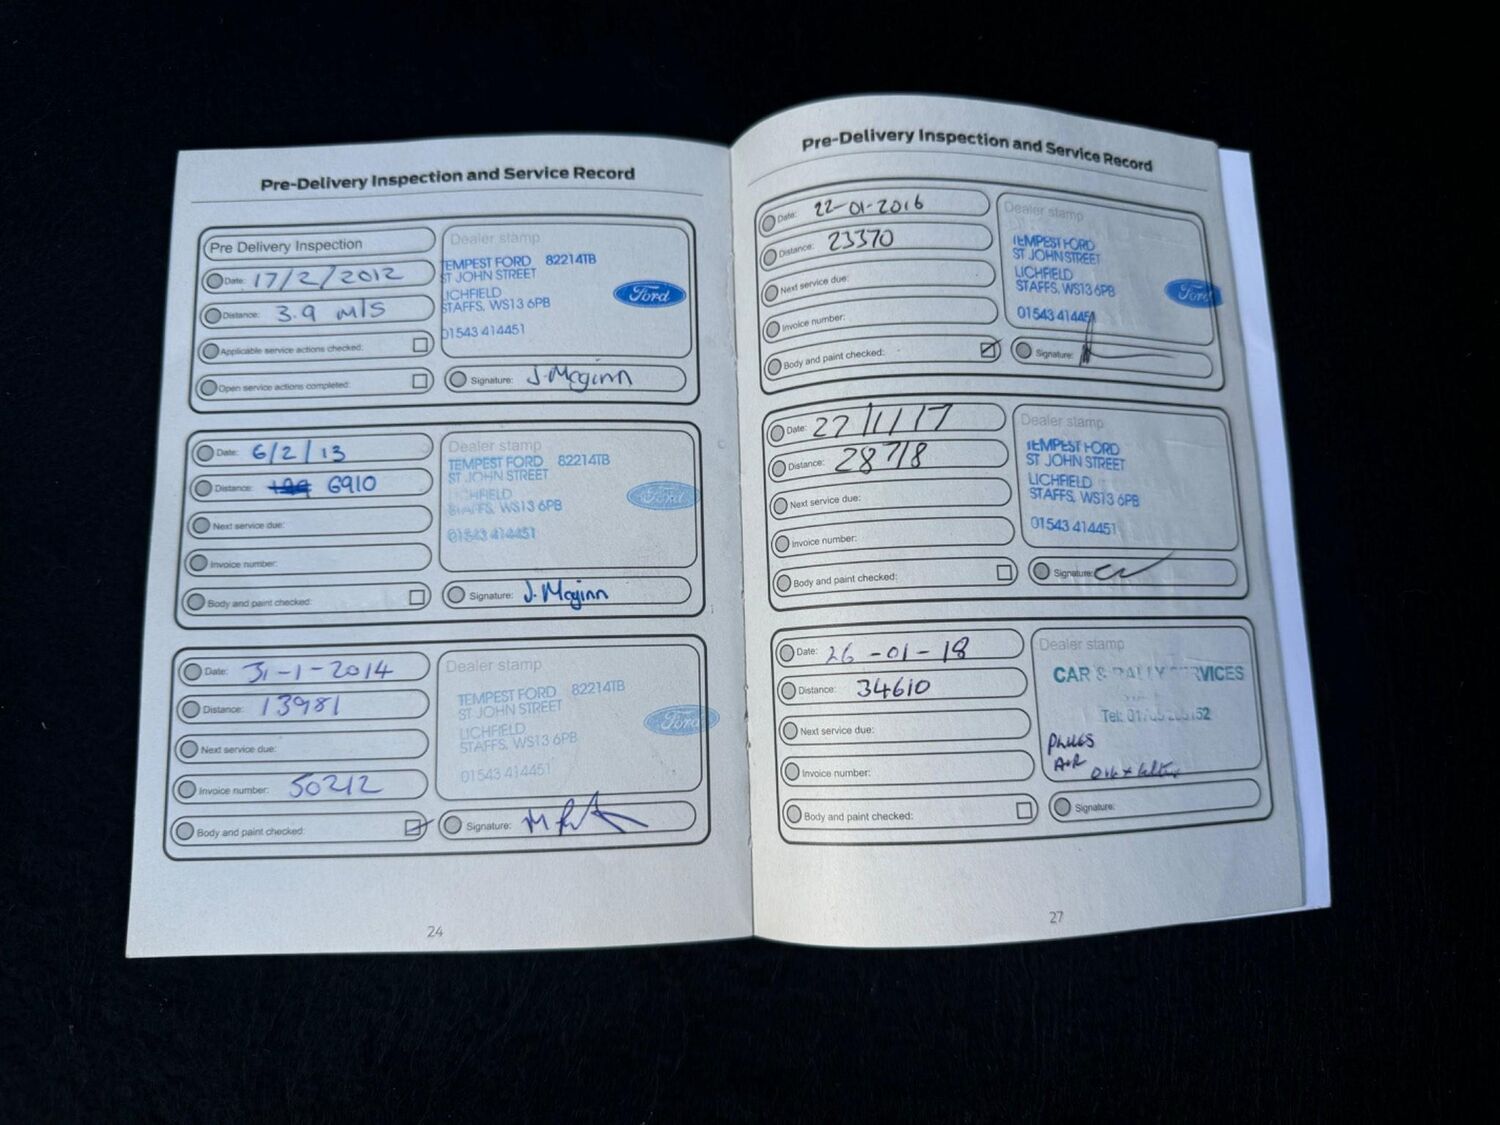 Pre-Delivery Inspection and Service Record
Pre Delivery Inspection
Date: 17/2/2012
Distance: 3.9 M/S
Applicable service actions checked:
Open service actions completed:
Dealer stamp
TEMPEST FORD 82214TB
ST JOHN STREET
LICHFIELD
STAFFS, WS13 6PB
01543 414451
Ford
Signature: J. Mcginn
Date: 6/2/13
Distance: 6910
Next service due:
Invoice number:
Body and paint checked:
Dealer stamp
TEMPEST FORD 82214TB
ST JOHN STREET
LICHFIELD
STAFFS, WS13 6PB
01543 414451
Ford
Signature: J. Mcginn
Date: 31-1-2014
Distance: 13981
Next service due:
Invoice number: 50212
Body and paint checked:
Dealer stamp
TEMPEST FORD 82214TB
ST JOHN STREET
LICHFIELD
STAFFS, WS13 6PB
01543 414451
Ford
Signature:
24
Pre-Delivery Inspection and Service Record
Date: 22-01-2016
Distance: 23370
Next service due:
Invoice number:
Body and paint checked:
Dealer stamp
TEMPEST FORD
ST JOHN STREET
LICHFIELD
STAFFS, WS13 6PB
01543 414451
Ford
Signature:
Date: 27/1/17
Distance: 28718
Next service due:
Invoice number:
Body and paint checked:
Dealer stamp
TEMPEST FORD
ST JOHN STREET
LICHFIELD
STAFFS, WS13 6PB
01543 414451
Signature:
Date: 26-01-18
Distance: 34610
Next service due:
Invoice number:
Body and paint checked:
Dealer stamp
CAR & RALLY SERVICES
Tel:
PLUGS
AIR
OIL + filter
Signature:
27